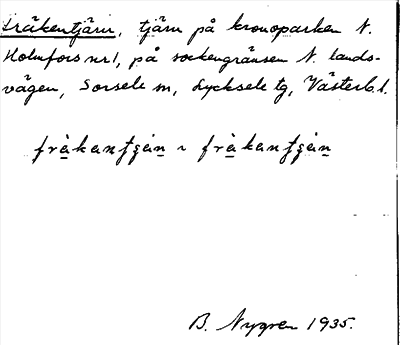 Fräkentjärn, tjärn på kronoparken N.
Holmfors nr 1, på sockengränsen N. lands-
vägen, Sorsele sn, Lycksele tg, Västerb. l.
frä̀kantjän ~ frä̀kantjän
B. Nygren 1935.